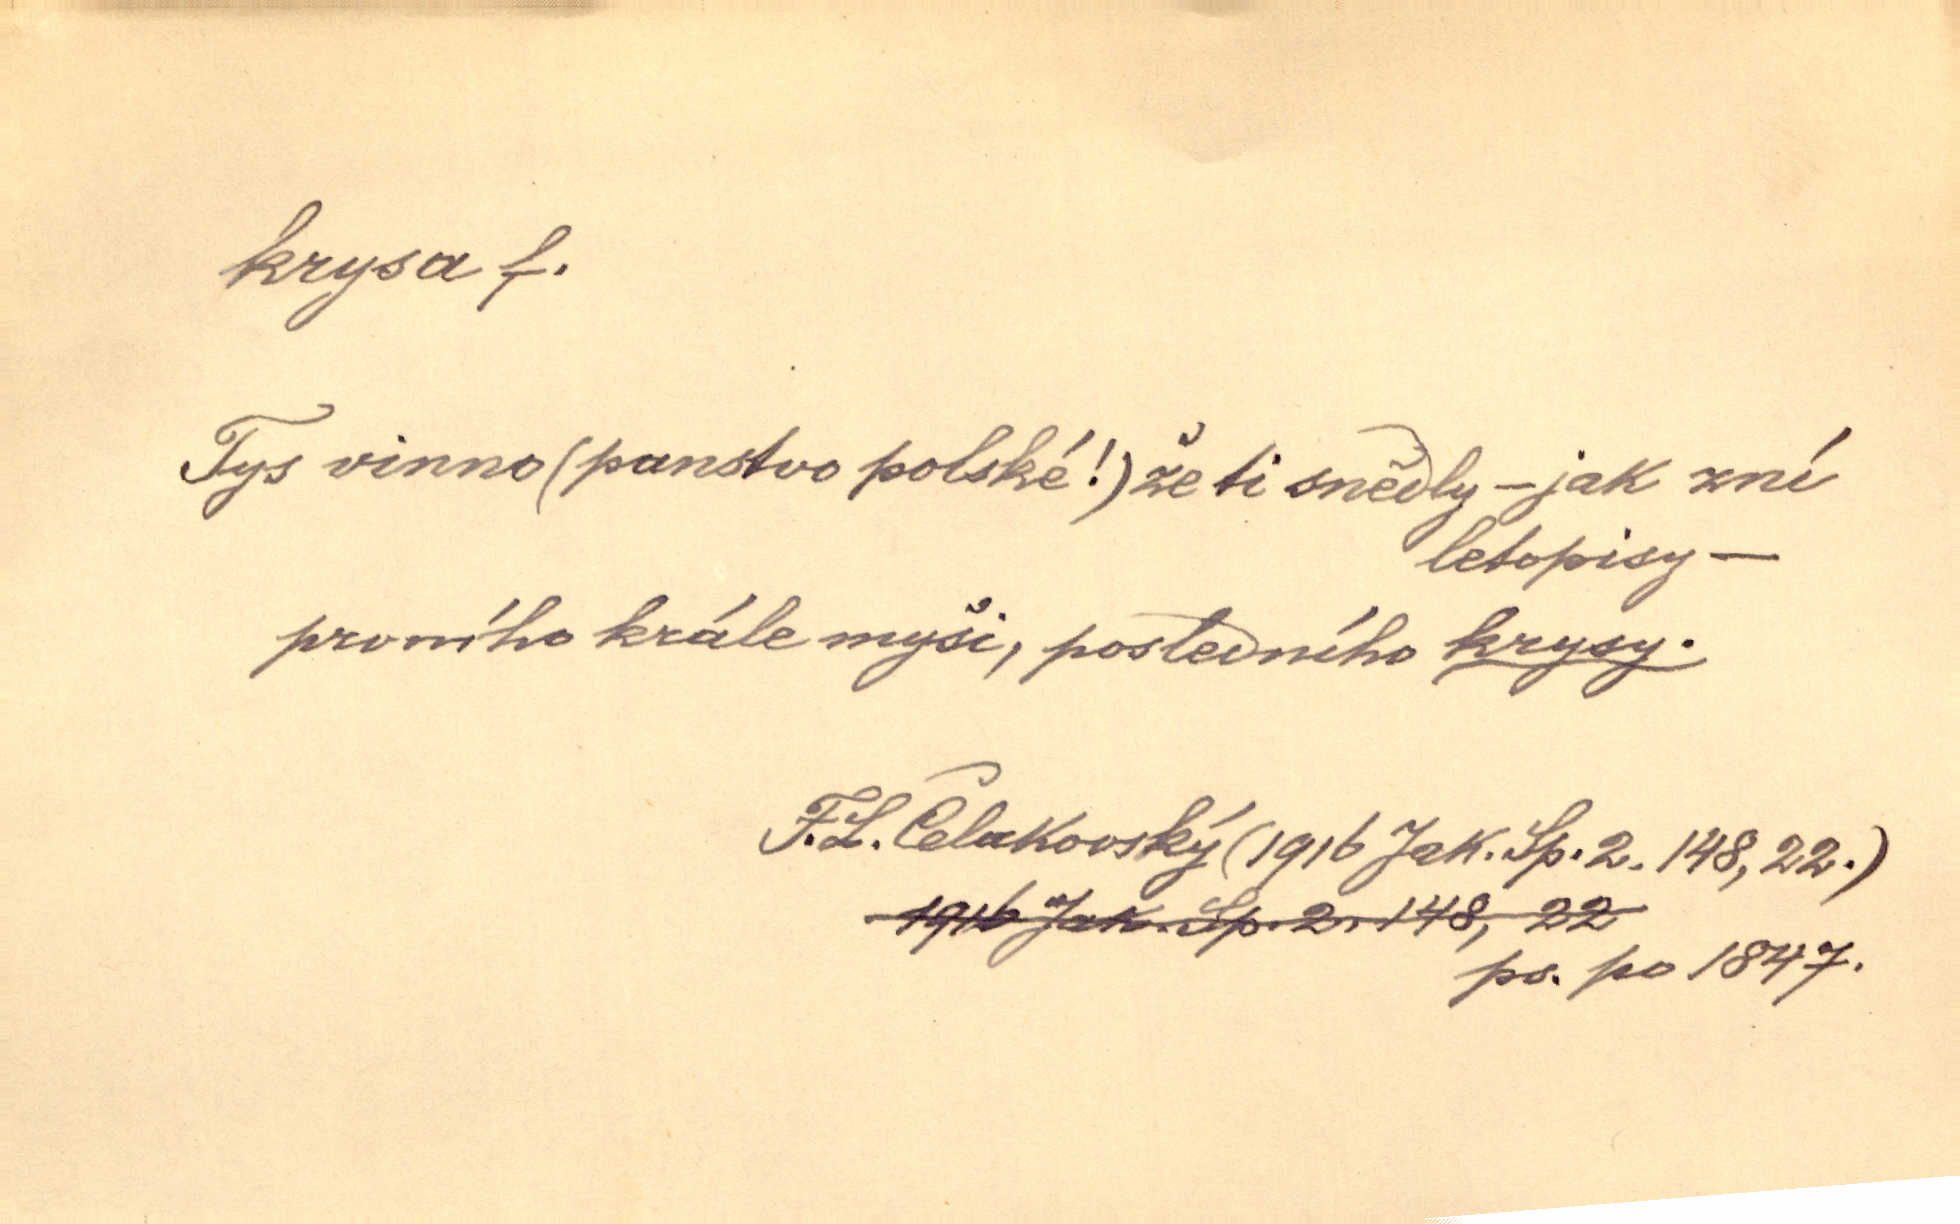 krysa f.
Tys vinno (panstvo polské!) že ti snědly – jak zní
letopisy –
prvního krále myši, posledního krysy.
F. L. Čelakovský (1916 Jak. Sp. 2. 148, 22.)
1916 Jak. Sp. 2. 148, 22
ps. po 1847.